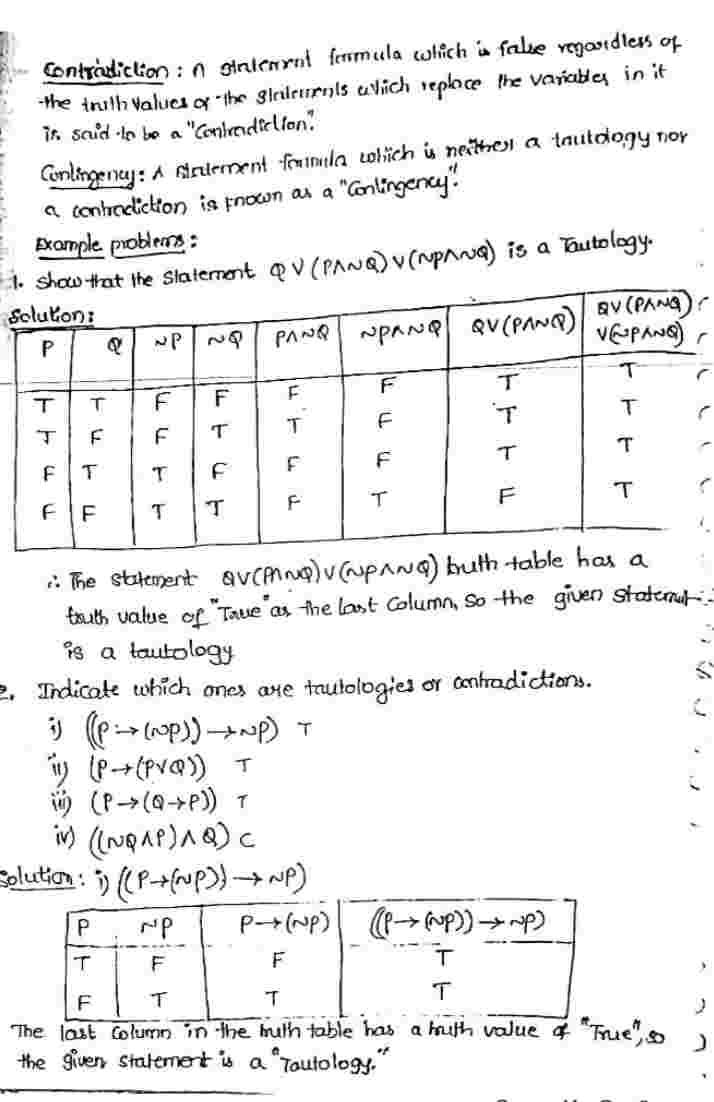 Contradiction : A statement formula which is false regardless of
the truth values of the statements which replace the variables in it
is said to be a "Contradiction".
Contingency : A statement formula which is neither a tautology nor
a contradiction is known as a "Contingency".
Example problems :
1. Show that the statement Q∨(P∧~Q)∨(~P∧~Q) is a Tautology.
Solution:
P Q ~P ~Q P∧~Q ~P∧~Q Q∨(P∧~Q) Q∨(P∧~Q)∨(~P∧~Q)
T T F F F F T T
T F F T T F T T
F T T F F F T T
F F T T F T F T
∴ The statement Q∨(P∧~Q)∨(~P∧~Q) truth table has a
truth value of "True" as the last column, so the given statement
is a tautology
2. Indicate which ones are tautologies or contradictions.
i) ((P→(~P))→~P) T
ii) (P→(P∨Q)) T
iii) (P→(Q→P)) T
iv) ((~Q∧P)∧Q) C
Solution : i) ((P→(~P))→~P)
P ~P P→(~P) ((P→(~P))→~P)
T F F T
F T T T
The last column in the truth table has a truth value of "True", so
the given statement is a "Tautology."